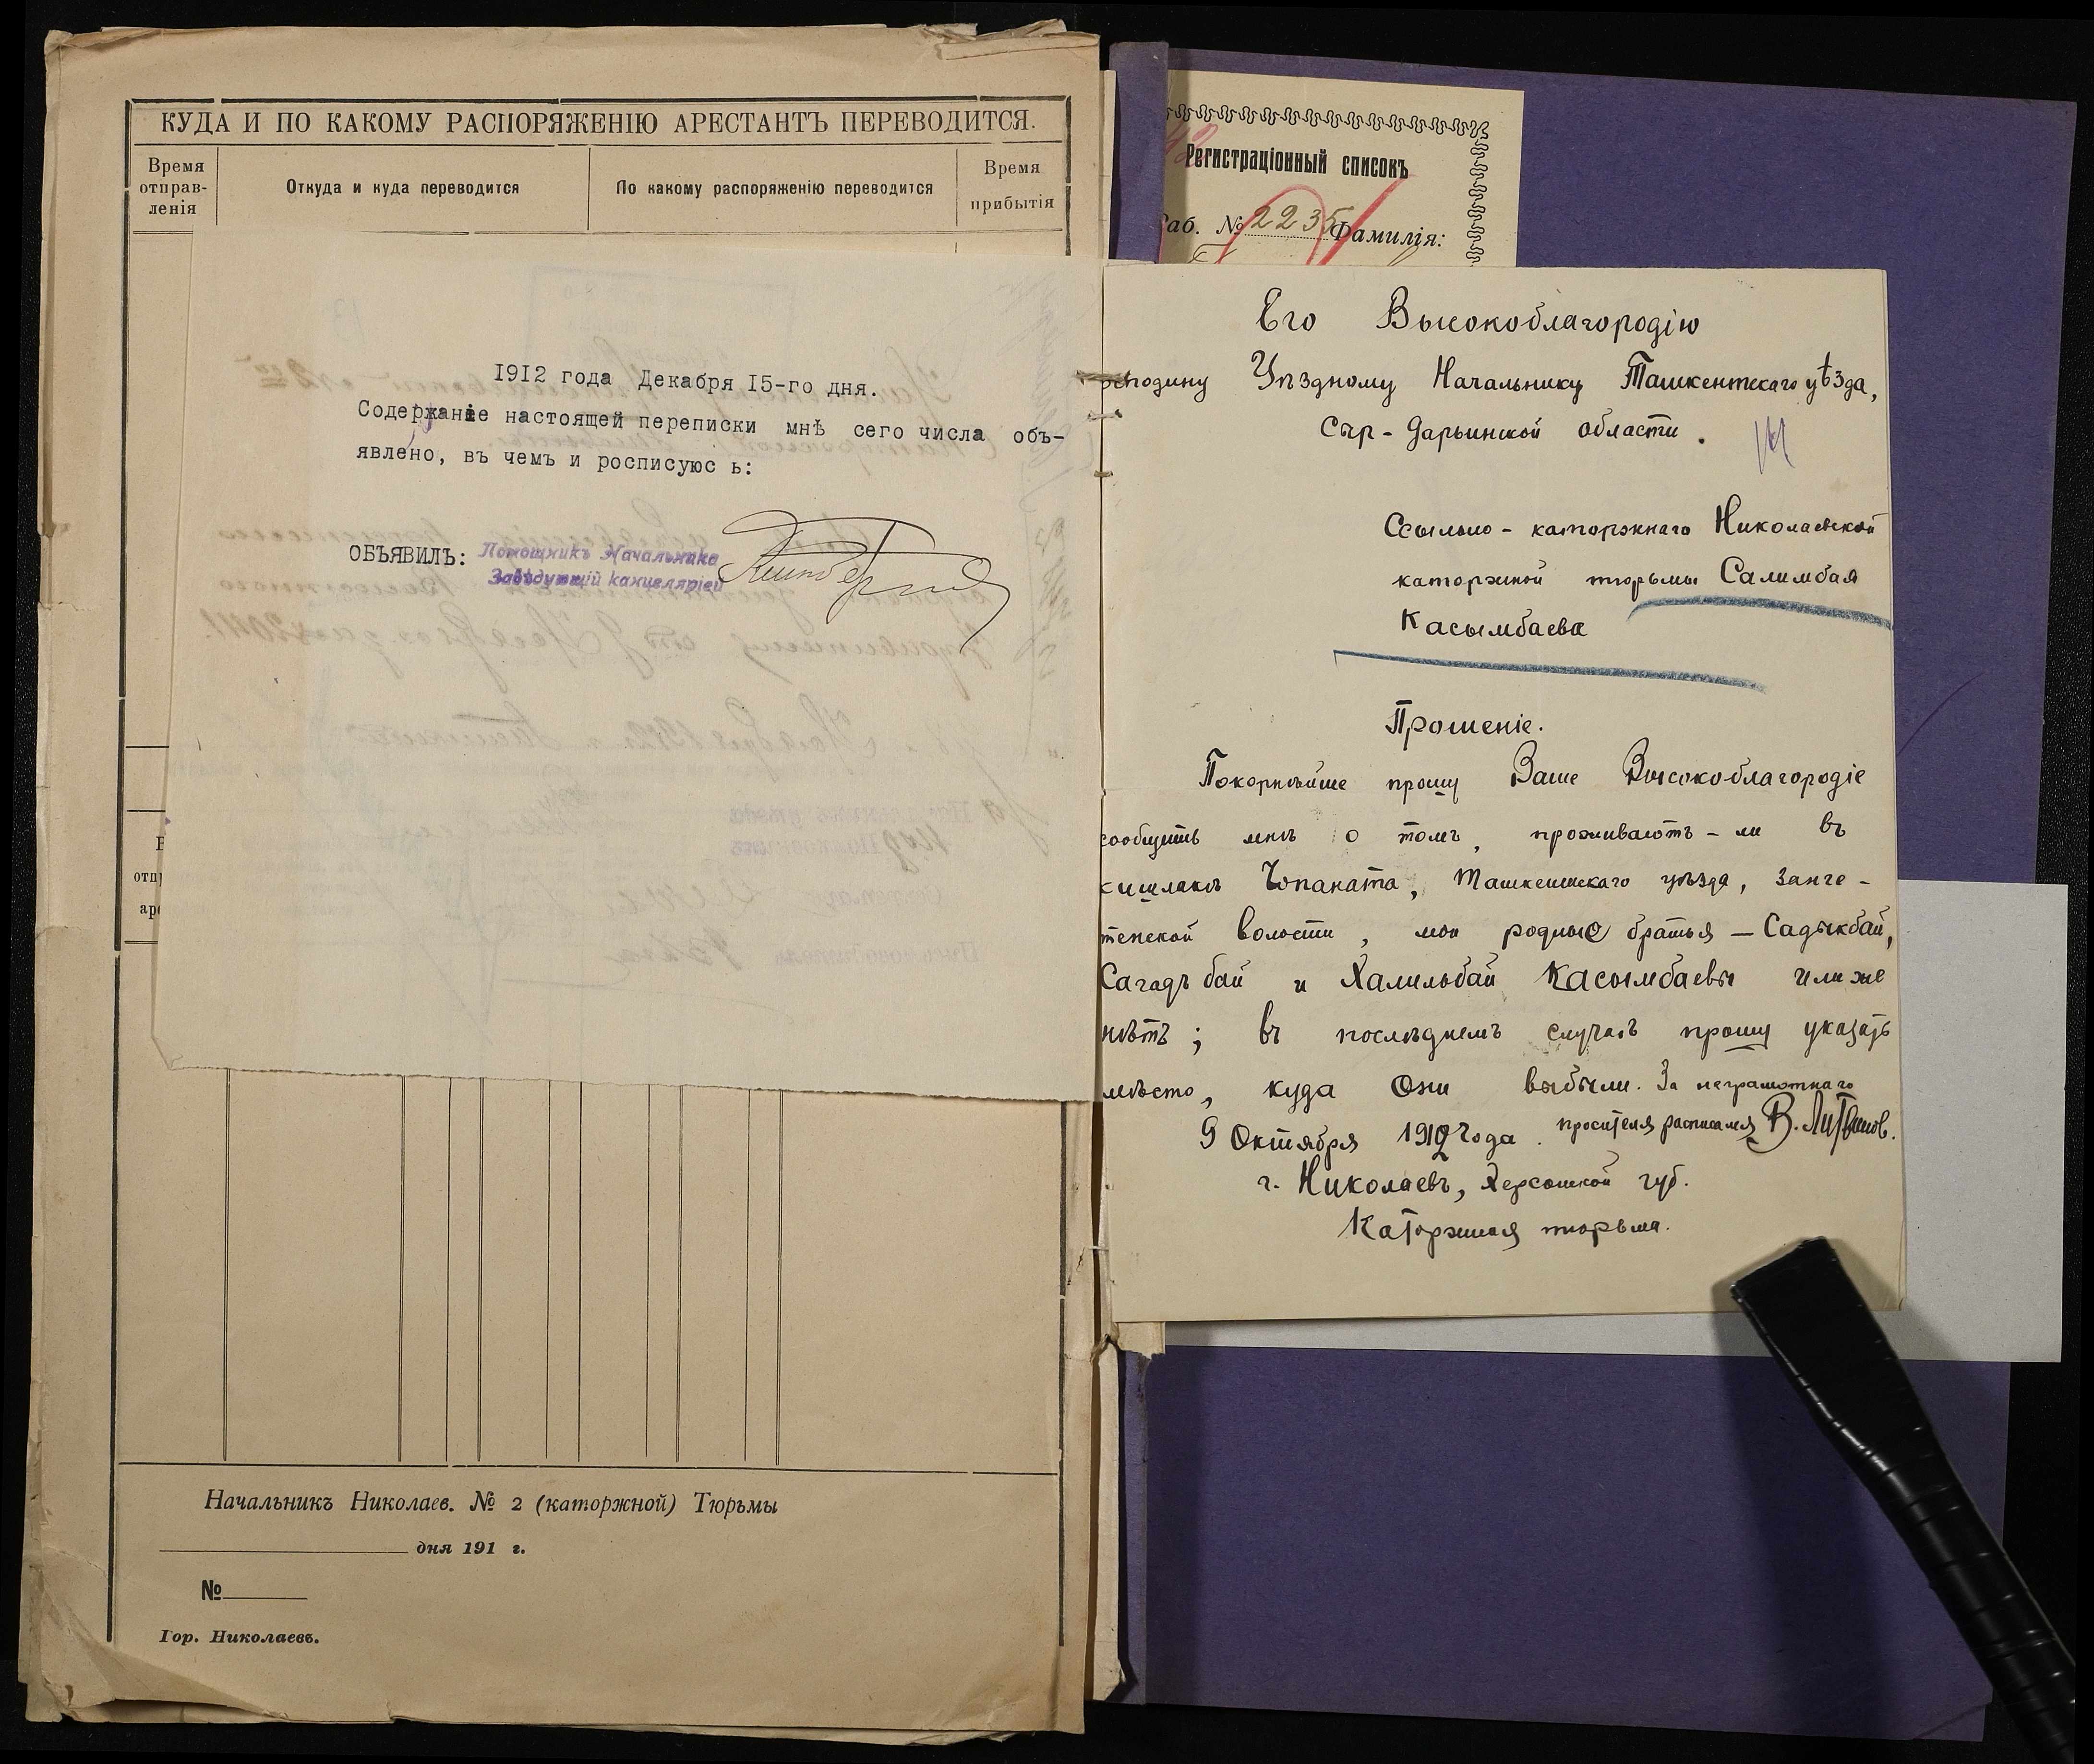 КУДА И ПО КАКОМУ РАСПОРЯЖЕНІЮ АРЕСТАНТЪ ПЕРЕВОДИТСЯ.
Время отправ-ленія
Откуда и куда переводится
По какому распоряженію переводится
Время прибытія
1912 года Декабря 15-го дня.
Содержаніе настоящей переписки мнѣ сего числа объ-
явлено, въ чемъ и росписуюс ь:
ОБЪЯВИЛЪ: Помощникъ Начальника
Завѣдующій канцеляріей
отп
аре
Начальникъ Николаев. № 2 (каторжной) Тюрьмы
дня 191 г.
№
Гор. Николаевъ.
Регистраціонный списокъ
аб. № 2235 Фамилія:
Его Высокоблагородію
господину Уѣздному Начальнику Ташкентскаго уѣзда,
Сыр-Дарьинской области.
Ссыльно-каторжнаго Николаевской
каторжной тюрьмы Салимбая
Касымбаева
Прошеніе.
Покорнѣйше прошу Ваше Высокоблагородіе
сообщить мнѣ о томъ, проживаютъ-ли въ
кишлакѣ Чопаната, Ташкентскаго уѣзда, Занге-
тенской волости, мои родные братья — Садыкбай,
Сагадъ бай и Халильбай Касымбаевы или же
нѣтъ; въ послѣднемъ случаѣ прошу указать
мѣсто, куда они выбыли. За неграмотнаго
9 Октября 1912 года. просителя расписался В. Литвинов.
г. Николаевъ, Херсонской губ.
Каторжная тюрьма.